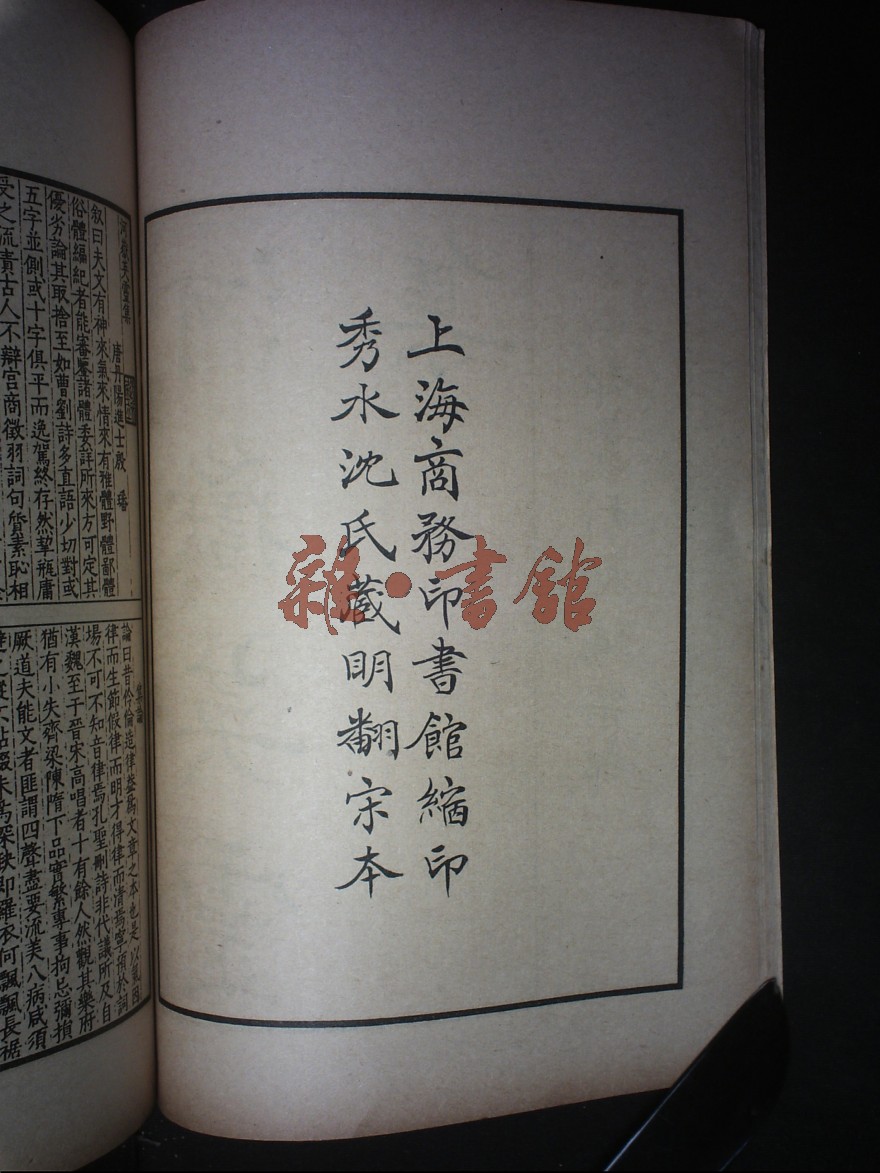 上海商務印書館縮印
秀水沈氏藏明翻宋本
雜·書館
河嶽英靈集
唐丹陽進士殷 璠
叙曰夫文有神來氣來情來有雅體野體鄙體
俗體編紀者能審鑒諸體委詳所來方可定其
優劣論其取捨至如曹劉詩多直語少切對或
五字並側或十字俱平而逸駕終存然挈瓶庸
受之流責古人不辯宫商徵羽詞句質素恥相
集論
論曰昔伶倫造律蓋爲文章之本也是以氣因
律而生節候律而明才得律而清焉寧預於詞
場不可不知音律焉孔聖刪詩非代議所及自
漢魏至于晉宋高唱者十有餘人然觀其樂府
猶有小失齊梁陳隋下品實繁專事拘忌彌損
厥道夫能文者匪謂四聲盡要流美八病咸須
避之縱不拈綴未爲深缺即羅衣何飄飄長裾